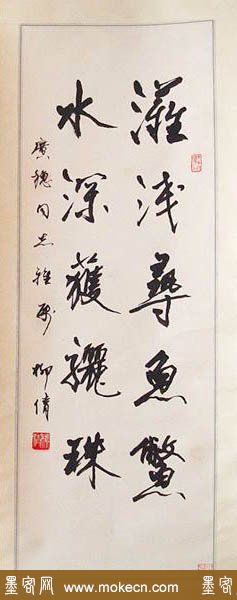 灘浅尋魚鱉
水深獲驪珠
廣穗同志雅屬 柳倩
墨客网 www.mokecn.com 墨客网